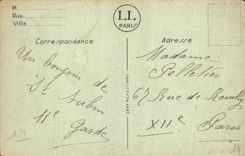 M
Rue
Ville
L.L.
PARIS
Correspondance
Adresse
Un bonjour de
St Aubin
11e Garde
Madame
Pelletier
67 Rue de Reuilly
XIIe
Paris